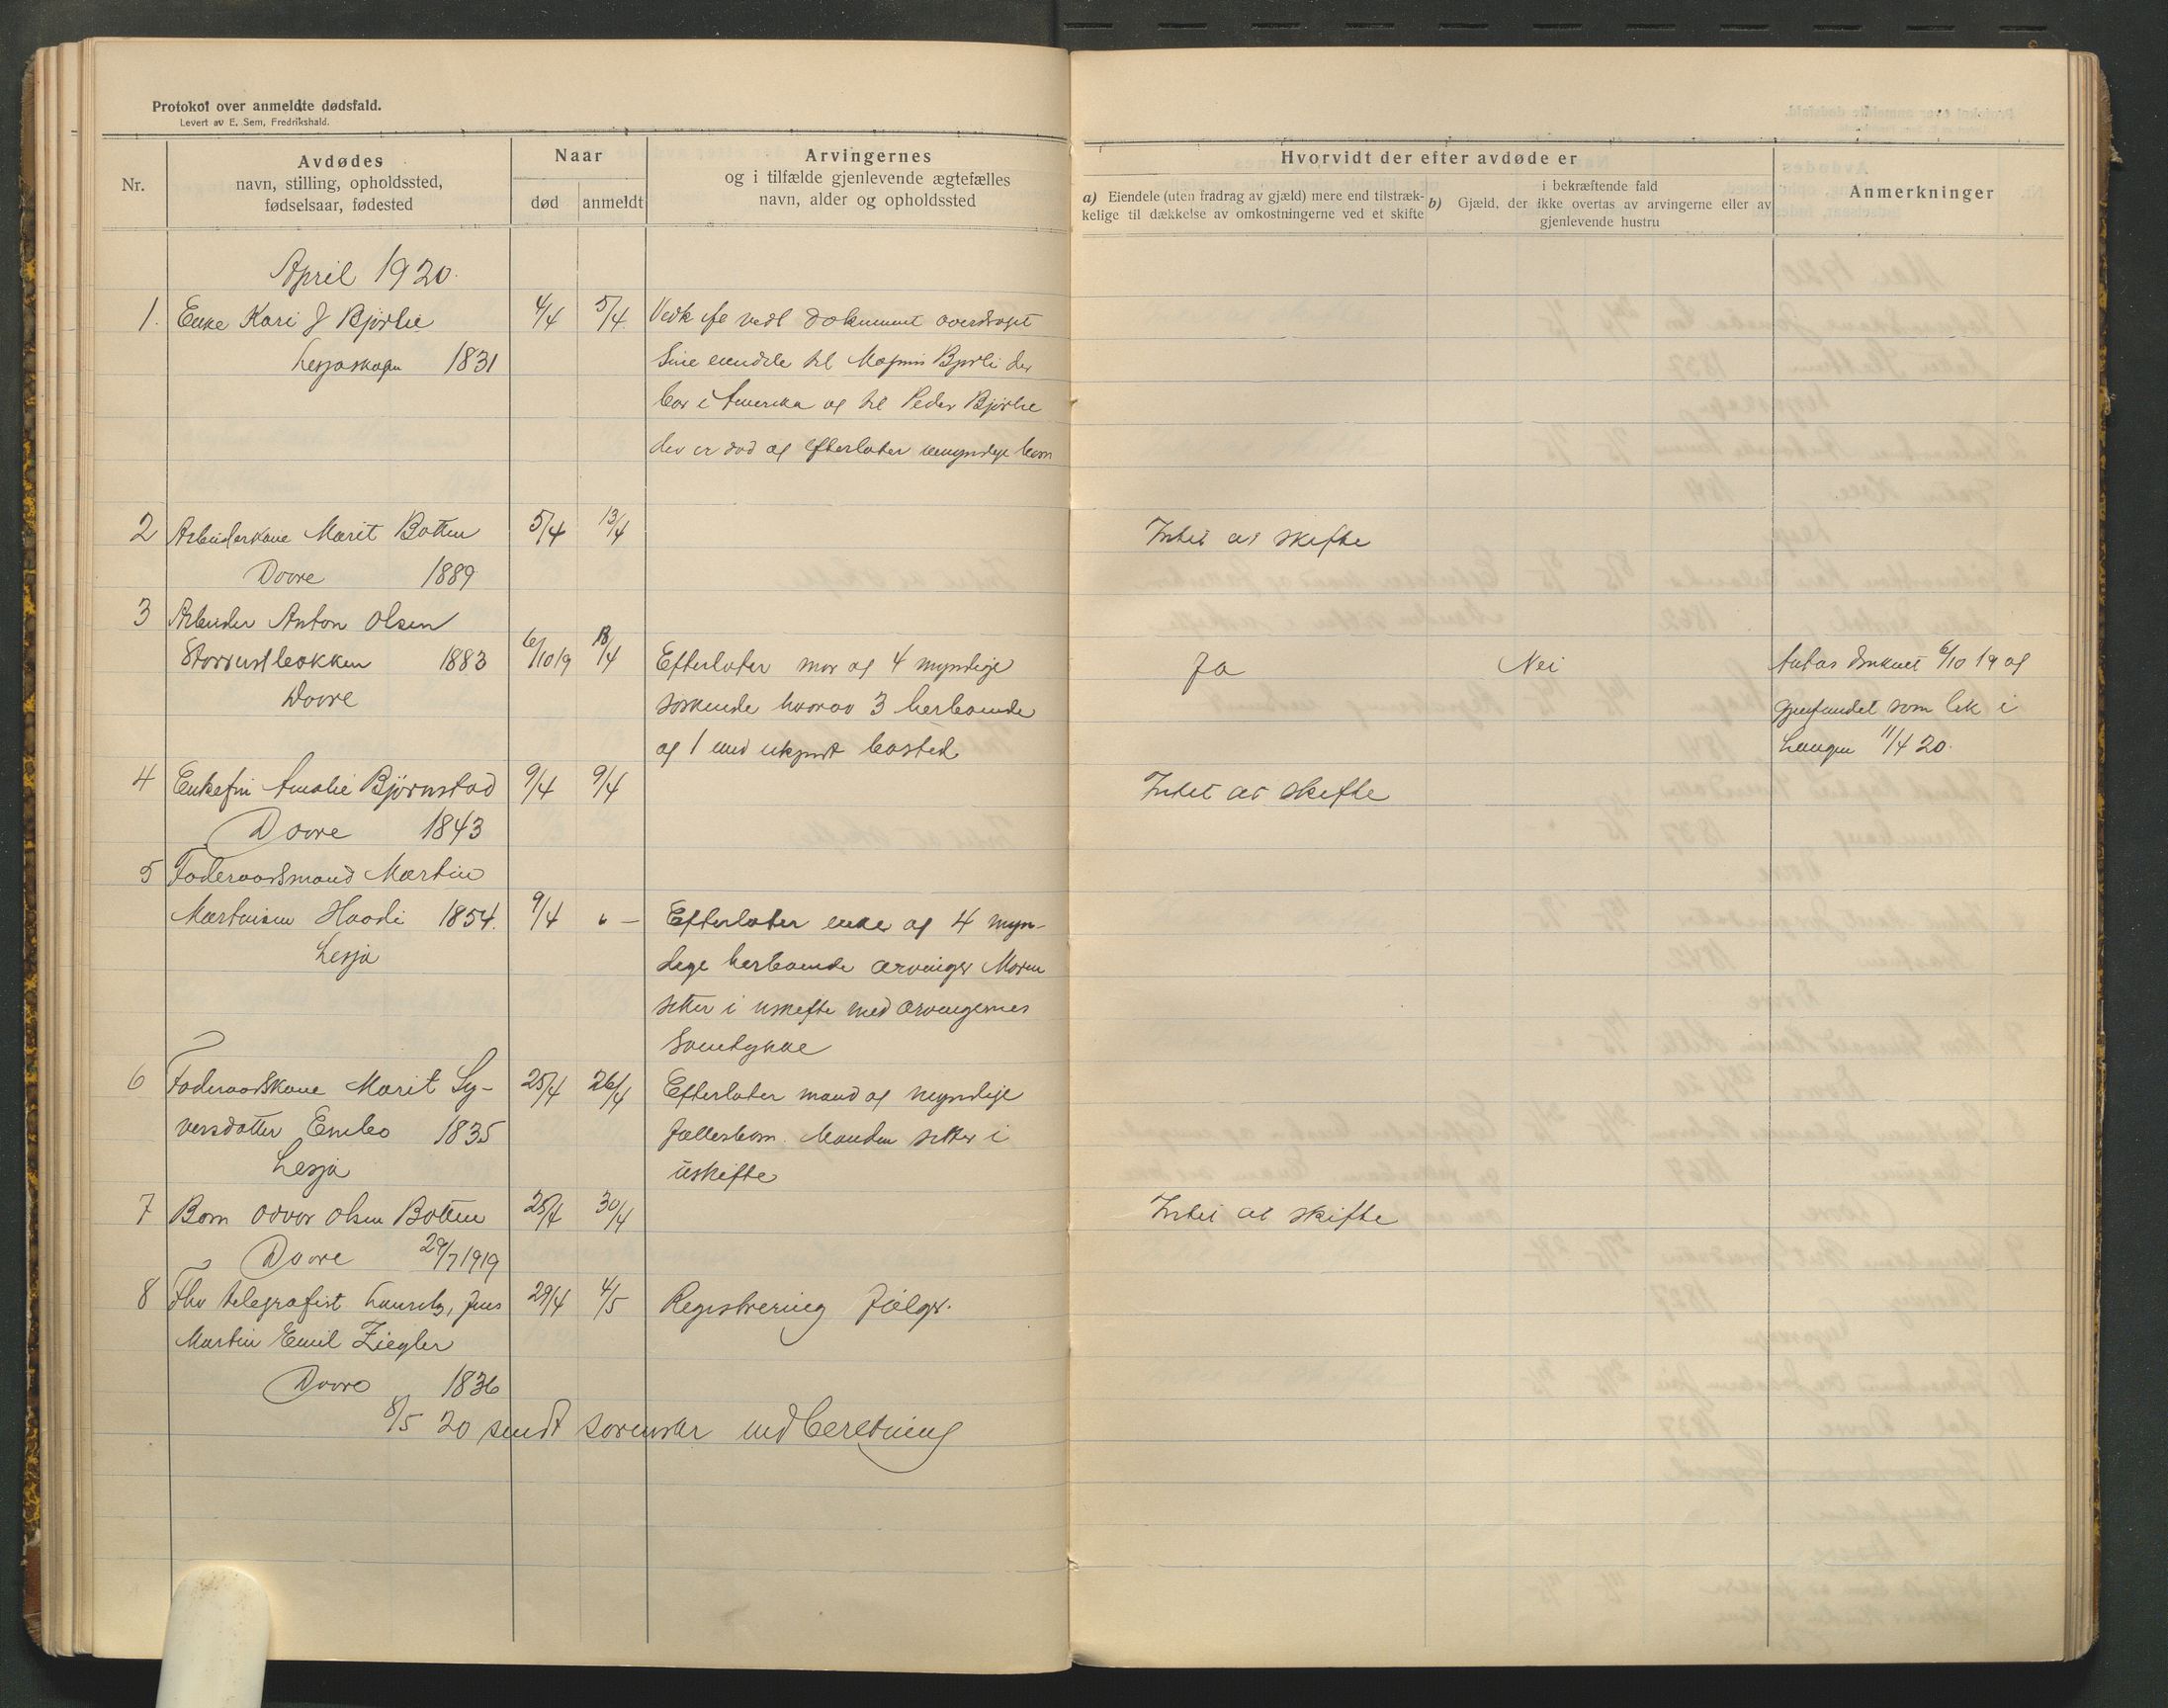 Protokol over anmeldte dødsfald.
Levert av E. Sem, Fredrikshald.
Nr.
Avdødes
navn, stilling, opholdssted,
fødselsaar, fødested
Naar
død
anmeldt
Arvingernes
og i tilfælde gjenlevende ægtefælles
navn, alder og opholdssted
Hvorvidt der efter avdøde er
a) Eiendele (uten fradrag av gjæld) mere end tilstræk-
kelige til dækkelse av omkostningerne ved et skifte
i bekræftende fald
b) Gjæld, der ikke overtas av arvingerne eller av
gjenlevende hustru
Anmerkninger
April 1920.
1. Enke Kari J Bjørlie 4/4 5/4 dokument overdraget
Lesjaskogen 1831 Sine eiendele til Magnus Bjorli der
bor i Amerika og til Peder Bjørlie
der er død og efterlater umyndige barn
2 Arbeiderkone Marit Botten 5/4 13/4 Intet at skifte
Dovre 1889
3 Arbeider Anton Olsen
Storrustbakken 1883 6/10 19 18/4 Efterlater mor og 4 myndige Ja Nei Antas druknet 6/10 19 og
Dovre søskende hvorav 3 herboende gjenfundet som lik i
og 1 med ukjendt bosted Laugen 11/4 20.
4 Enkefru Amalie Bjørnstad 9/4 9/4 Intet at skifte
Dovre 1843
5 Føderaadsmand Martin
Martinsen Haadi 1854. 9/4 " — Efterlater enke og 4 myn-
Lesja dige herboende arvinger Moren
sitter i uskifte med arvingernes
Samtykke
6 Føderaadskone Marit Sy- 25/4 26/4 Efterlater mand og myndige
versdatter Enebo 1835 fællesbarn. Manden sitter i
Lesja uskifte
7 Barn Odvar Olsen Botten 28/4 30/4 Intet at skifte
Dovre 29/7 1919
8 Fhv telegrafist Lauritz, Jens 29/4 4/5 Registrering følger.
Martin Emil Ziegler
Dovre 1836
8/5 20 sendt sorenskr indberetning